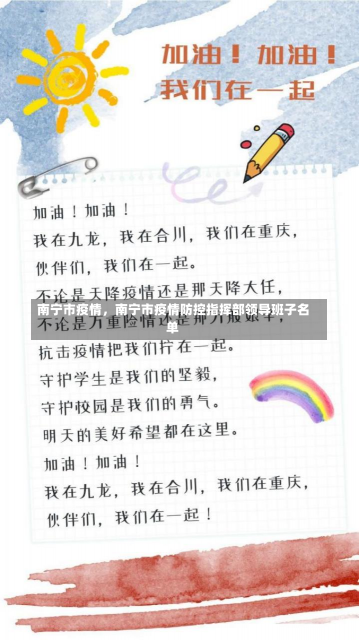 加油！加油！
我们在一起
加油！加油！
我在九龙，我在合川，我们在重庆，
伙伴们，我们在一起。
不论是天降疫情还是那天降大任，
南宁市疫情，南宁市疫情防控指挥部领导班子名
单
不论是万重险情还是那
抗击疫情把我们拧在一起。
守护学生是我们的坚毅，
守护校园是我们的勇气。
明天的美好希望都在这里。
加油！加油！
我在九龙，我在合川，我们在重庆，
伙伴们，我们在一起！